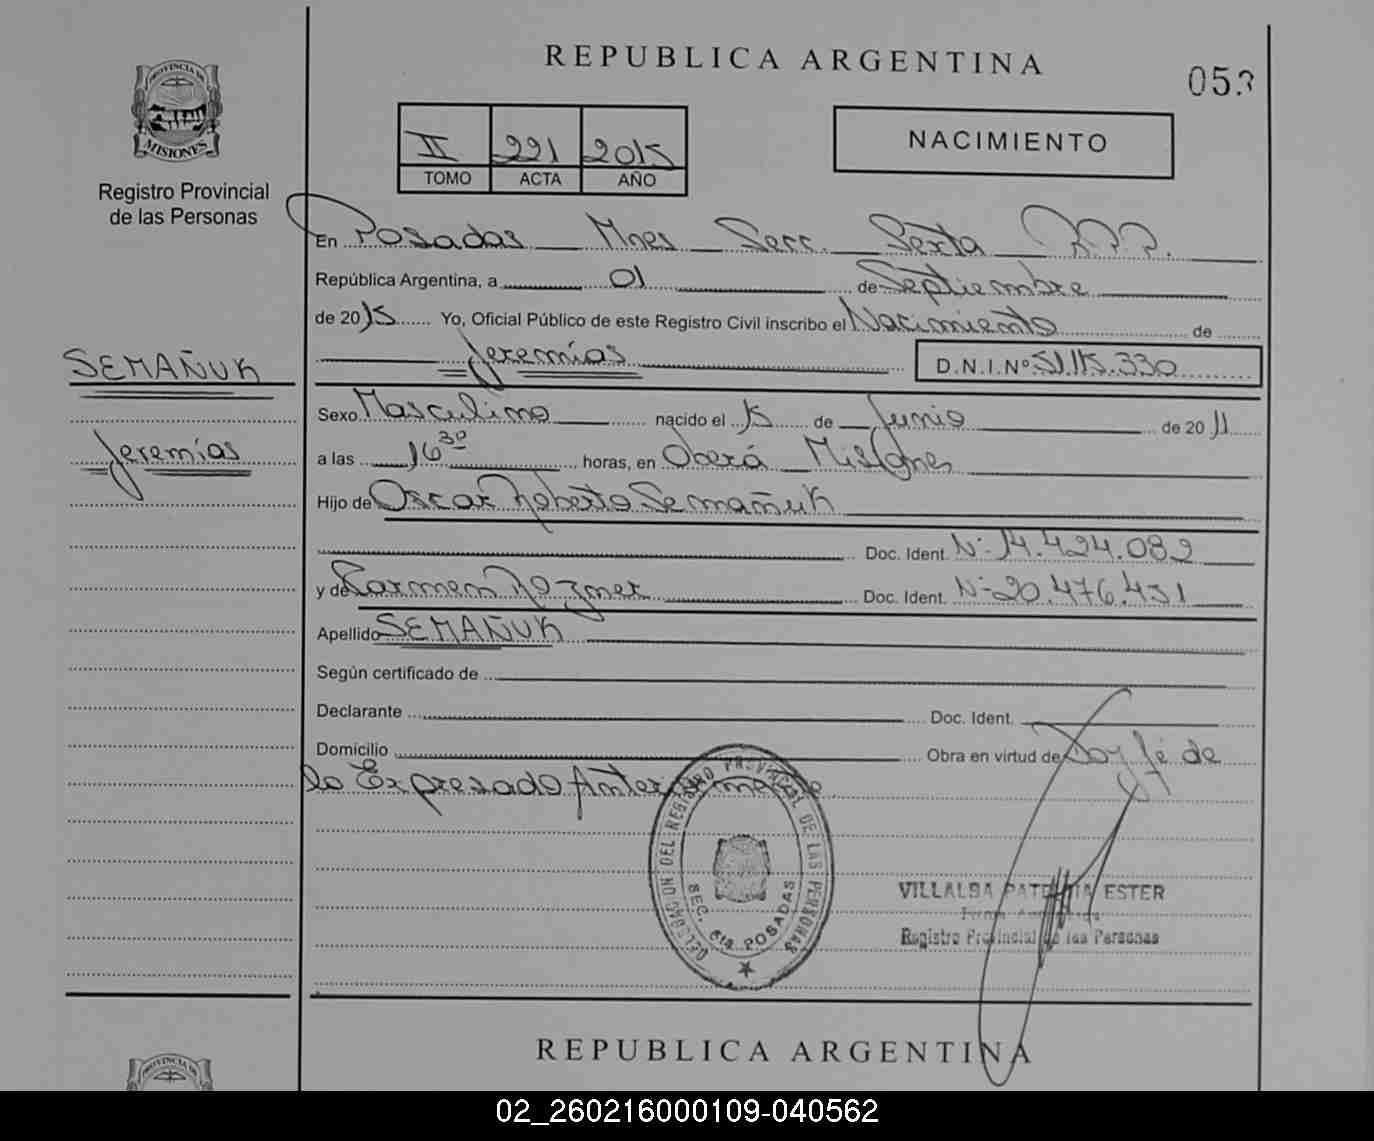 REPUBLICA ARGENTINA
053
PROVINCIA DE
MISIONES
Registro Provincial
de las Personas
II 221 2015
TOMO ACTA AÑO
NACIMIENTO
En Posadas Mnes Secc. Sexta R.P.P.
República Argentina, a 01 de Septiembre
de 2015 Yo, Oficial Público de este Registro Civil inscribo el Nacimiento de
Jeremías D.N.I.Nº 51.115.330
SEMAÑUK
Jeremías
Sexo Masculino nacido el 15 de Junio de 2011
a las 16 30 horas, en Oberá Misiones
Hijo de Oscar Roberto Semañuk
Doc. Ident. Nº 14.424.082
y de Carmen Rozner Doc. Ident. Nº 20.476.431
Apellido SEMAÑUK
Según certificado de
Declarante Doc. Ident.
Domicilio Obra en virtud de Doy fé de
lo Expresado Anteriormente
DELEGACION DEL REGISTRO PROVINCIAL DE LAS PERSONAS
SEC. 6ta POSADAS
VILLALBA PATRICIA ESTER
Registro Provincial de las Personas
REPUBLICA ARGENTINA
PROVINCIA DE
02_260216000109-040562